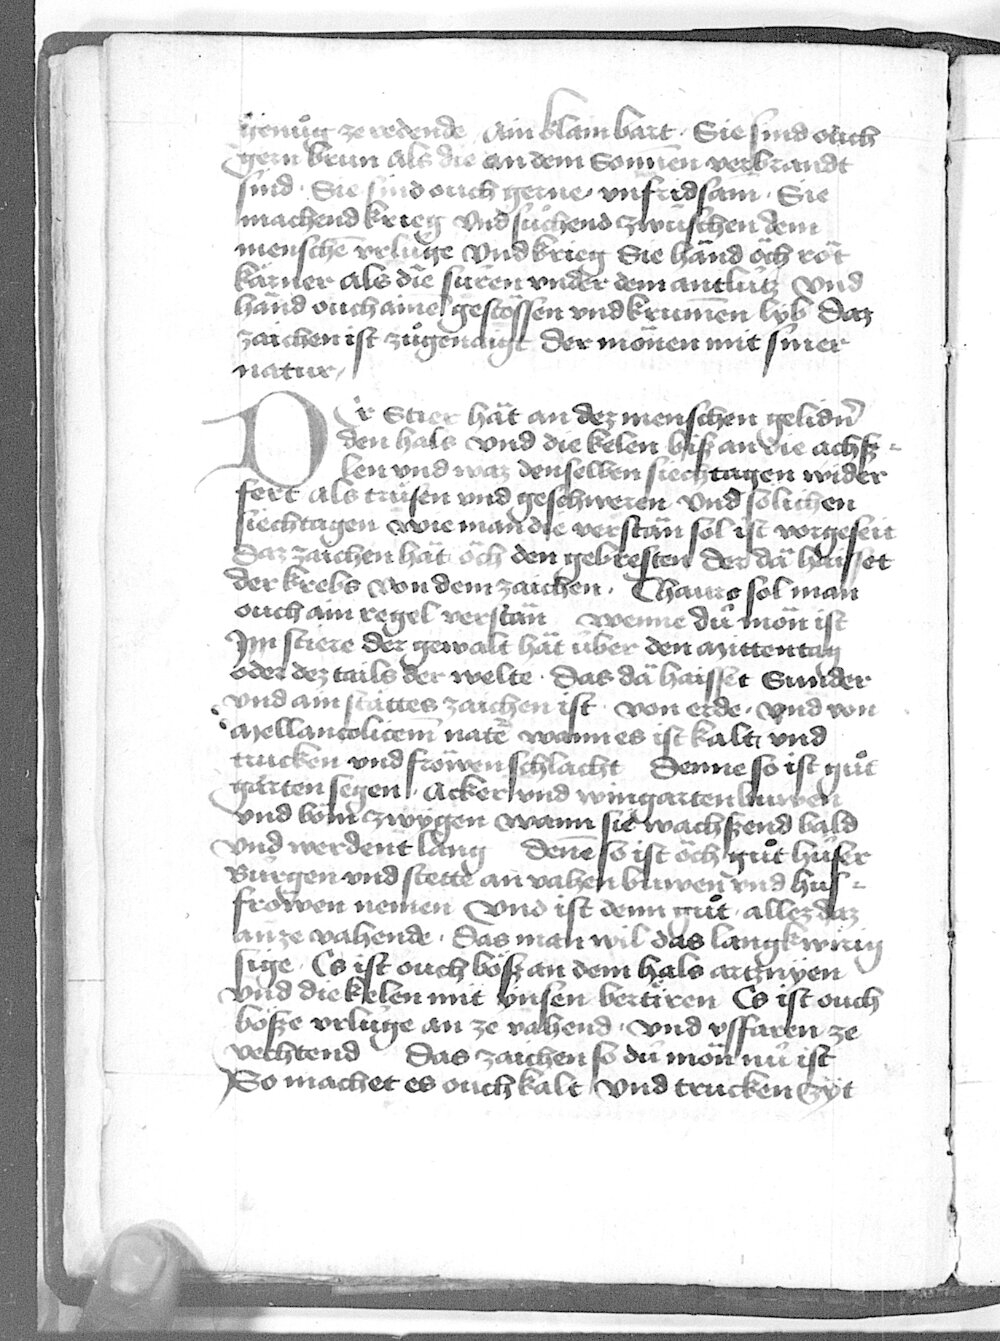 genůg ze redende Ain klain bart · Sie sind ouch
gern brun als die an dem Sonnen verbrandt
sind · Sie sind ouch gerne vnfridsam · Sie
machend krieg vnd sůchend zwüschen dem
menschē vrlüge vnd krieg Sie händ öch röt
karner als die suren vnder dem antlütz vnd
händ ouch aine gestössen vnd krum̄en lyb Daz
zaichen ist zůgenaigt der mönen mit siner
natur
Dr Stier hät an dez menschen gelidn̄
den hals vnd die kelen biß an die achß=
len vnd waz denselben siechtagen wider
fert als trüsen vnd geschweren vnd solichen
siechtagen Wie man die verstän sol ist vorgeseit
Daz zaichen hät öch den gebresten Der dä haisset
der krebs Von dem zaichen · Thauro sol man
ouch ain regel verstän Wenne dü mön ist
Im stiere der gewalt hät über den Mittentag
oder dez tails der welte · Das dä haisset Sunder
vnd ain stättes zaichen ist · von erde · vnd von
Mellancolicem̄ natē wann es ist kalt vnd
trucken vnd fröwen schlacht Denne so ist gůt
garten segen · Acker vnd wingarten buwen
vnd böm zwygen wann sie wachßend bald
vnd werdent lang Denē so ist öch gůt hüser
Bürgen vnd stette an vahen buwen vnd hus=
fröwen nemen Vnd ist denn gůt · allez daz
an ze vahende · Das man wil das langkwirig
sige · Es ist ouch böß an dem hals artznyen
vnd die kelen mit ynsen berüren Es ist ouch
böße vrlüge an ze vähend · vnd vssaren ze
vechtend Das zaichen so dü mön nü ist
So machet es ouch kalt vnd trucken Zyt